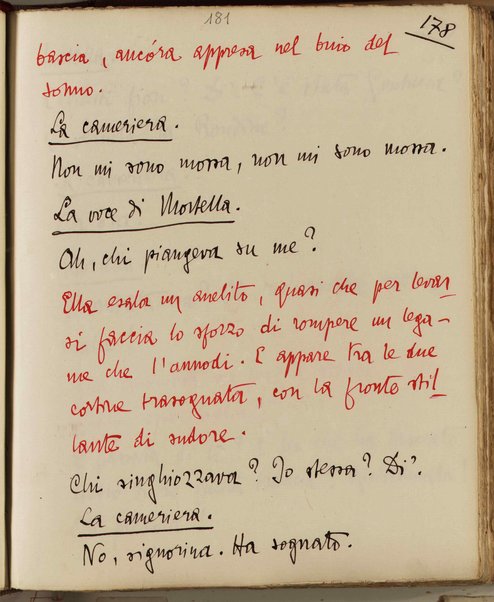 181
178
bascia, ancóra appresa nel buio del
sonno.
La cameriera.
Non mi sono mossa, non mi sono mossa.
La voce di Mortella.
Ah, chi piangeva su me?
Ella esala un anelito, quasi che per levar-
si faccia lo sforzo di rompere un lega-
me che l'annodi. E appare tra le due
cortine trasognata, con la fronte stil-
lante di sudore.
Chi singhiozzava? Io stessa? Di'.
La cameriera.
No, signorina. Ha sognato.